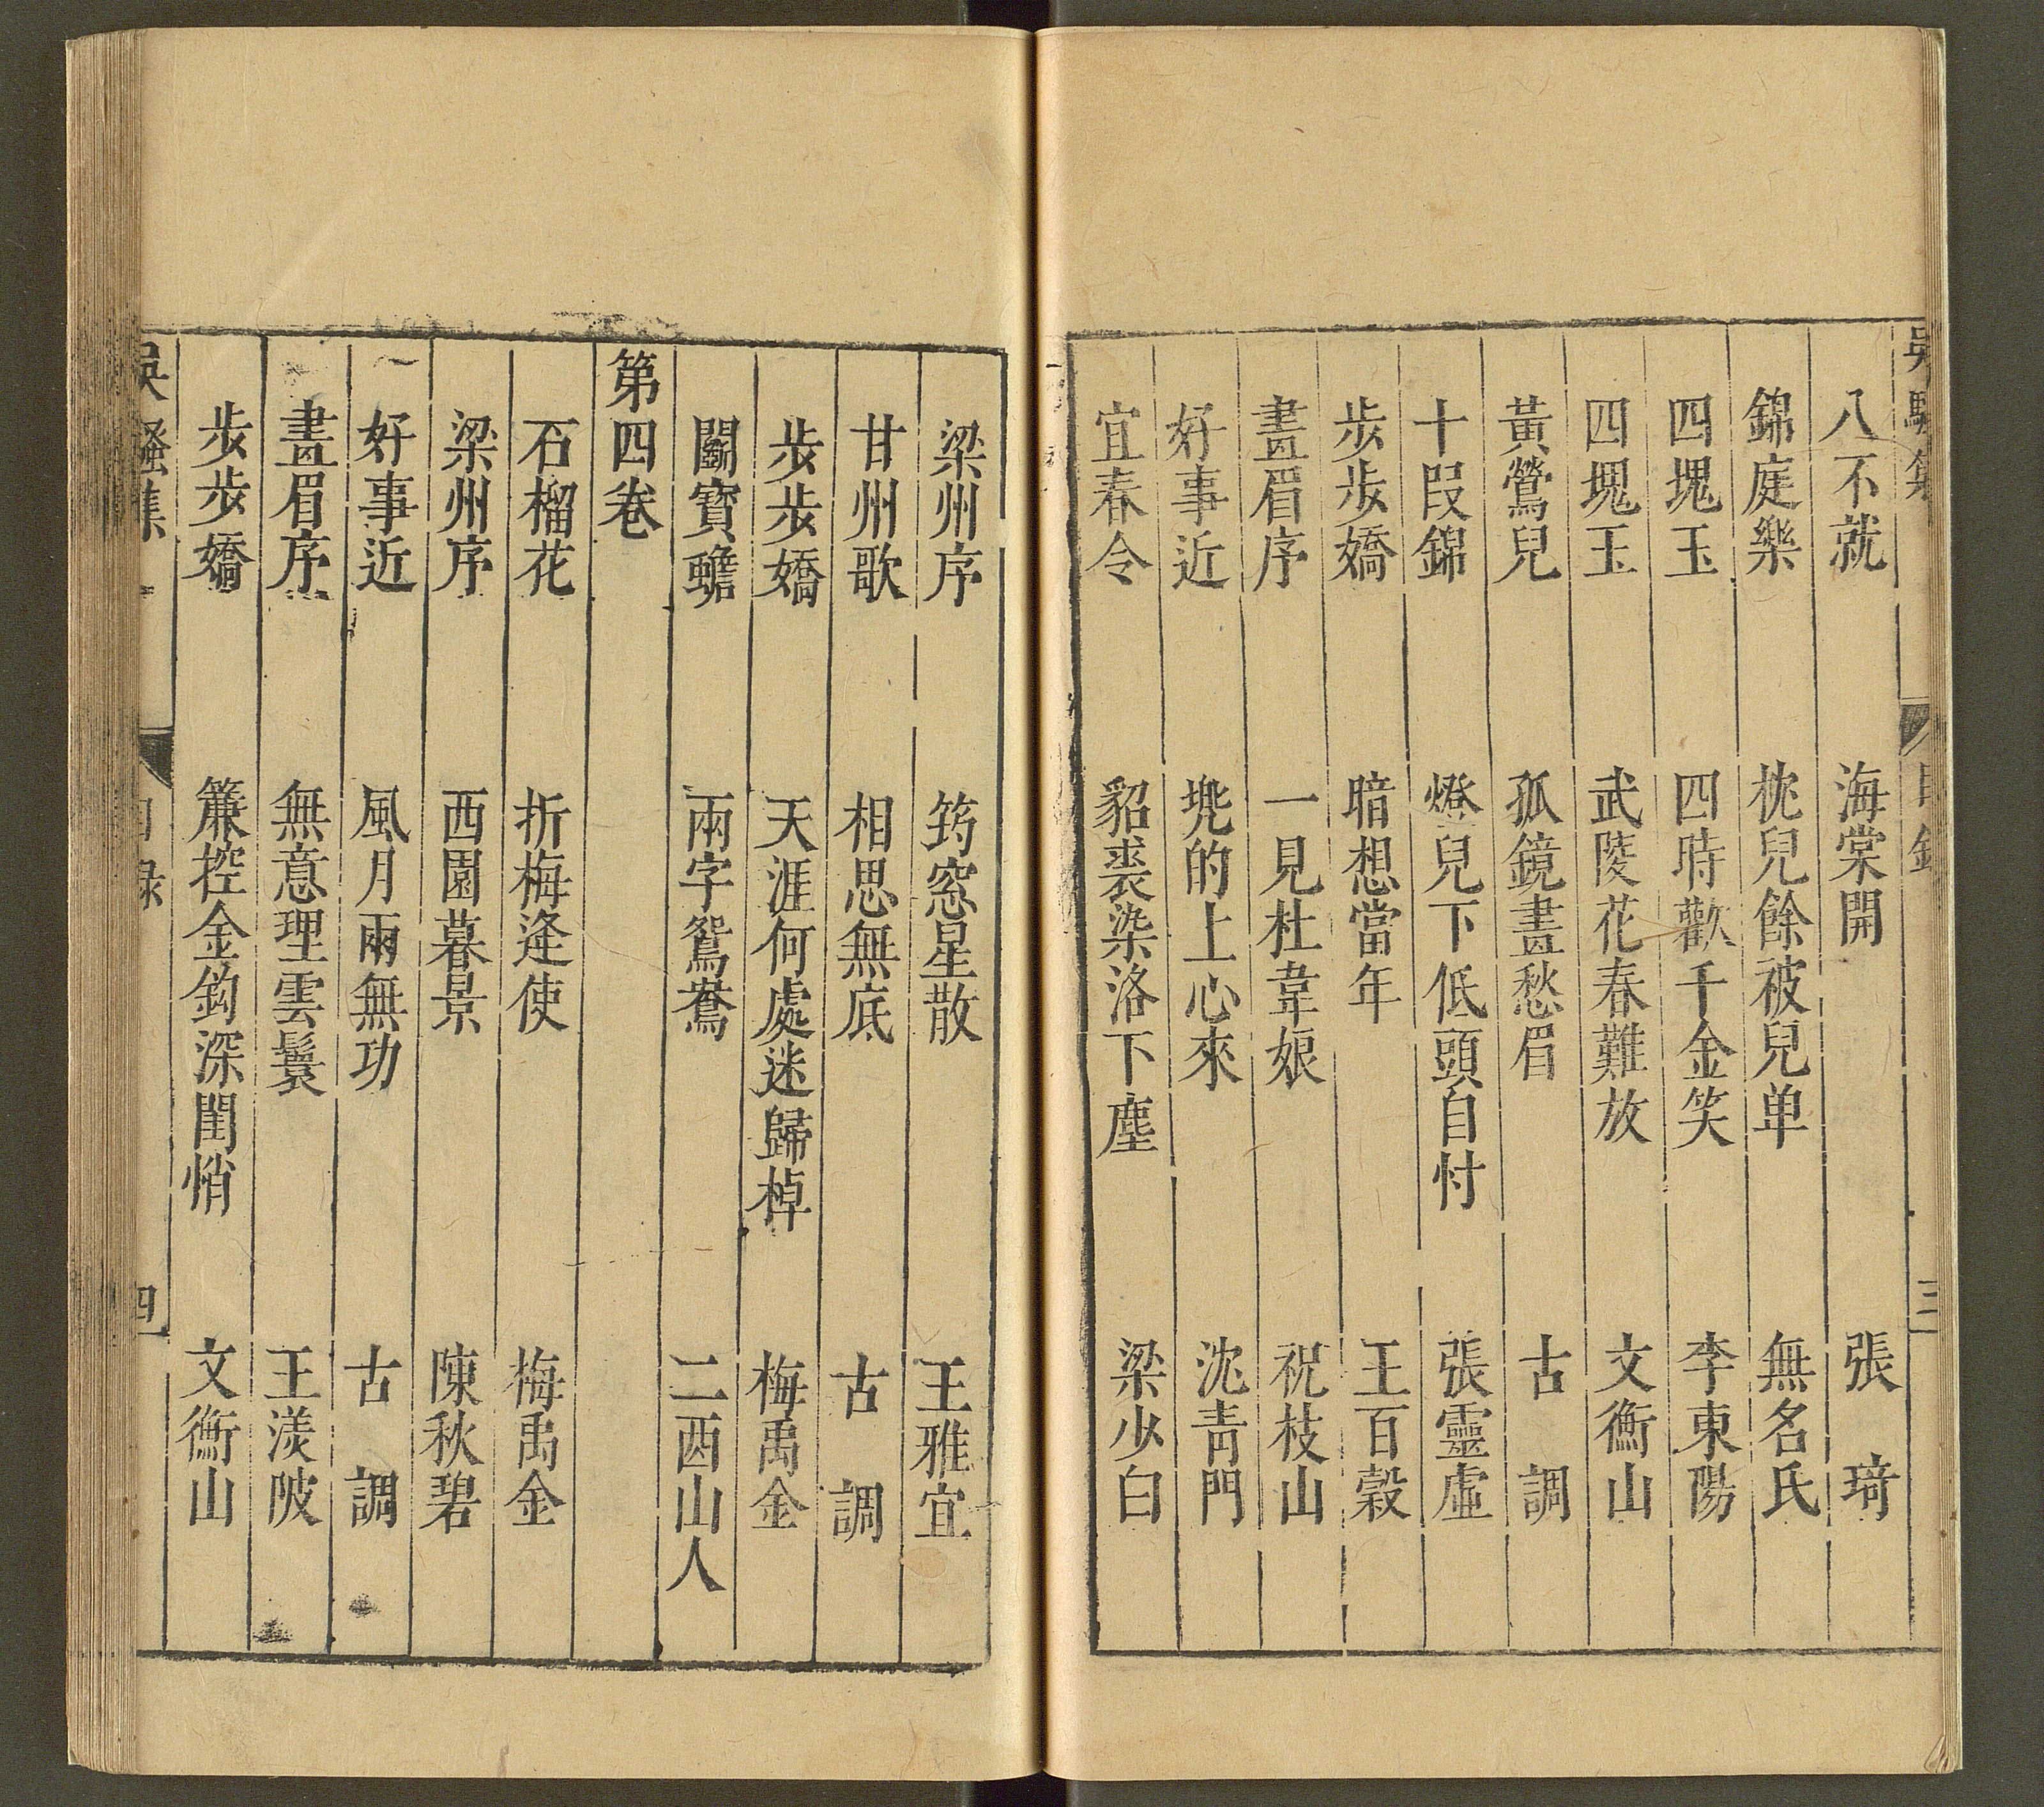 吳騷集 目錄 三
八不就 海棠開 張琦
錦庭樂 枕兒餘被兒单 無名氏
四塊玉 四時歡千金笑 李東陽
四塊玉 武陵花春難放 文衡山
黃鶯兒 孤鏡畫愁眉 古調
十段錦 燈兒下低頭自忖 張靈虛
步步嬌 暗想當年 王百穀
畫眉序 一見杜韋娘 祝枝山
好事近 兠的上心來 沈青門
宜春令 貂裘染洛下塵 梁少白
梁州序 筠窓星散 王雅宜
甘州歌 相思無底 古調
步步嬌 天涯何處迷歸棹 梅禹金
鬭寶蟾 兩字鴛鴦 二酉山人
第四卷
石榴花 折梅逢使 梅禹金
梁州序 西園暮景 陳秋碧
好事近 風月兩無功 古調
畫眉序 無意理雲鬟 王渼陂
步步嬌 簾控金鈎深閨悄 文衡山
吳騷集 目録 四